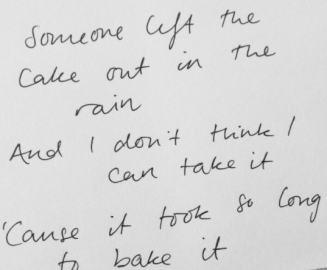 Someone left the
cake out in the
rain
And I don't think I
can take it
'Cause it took so long
to bake it